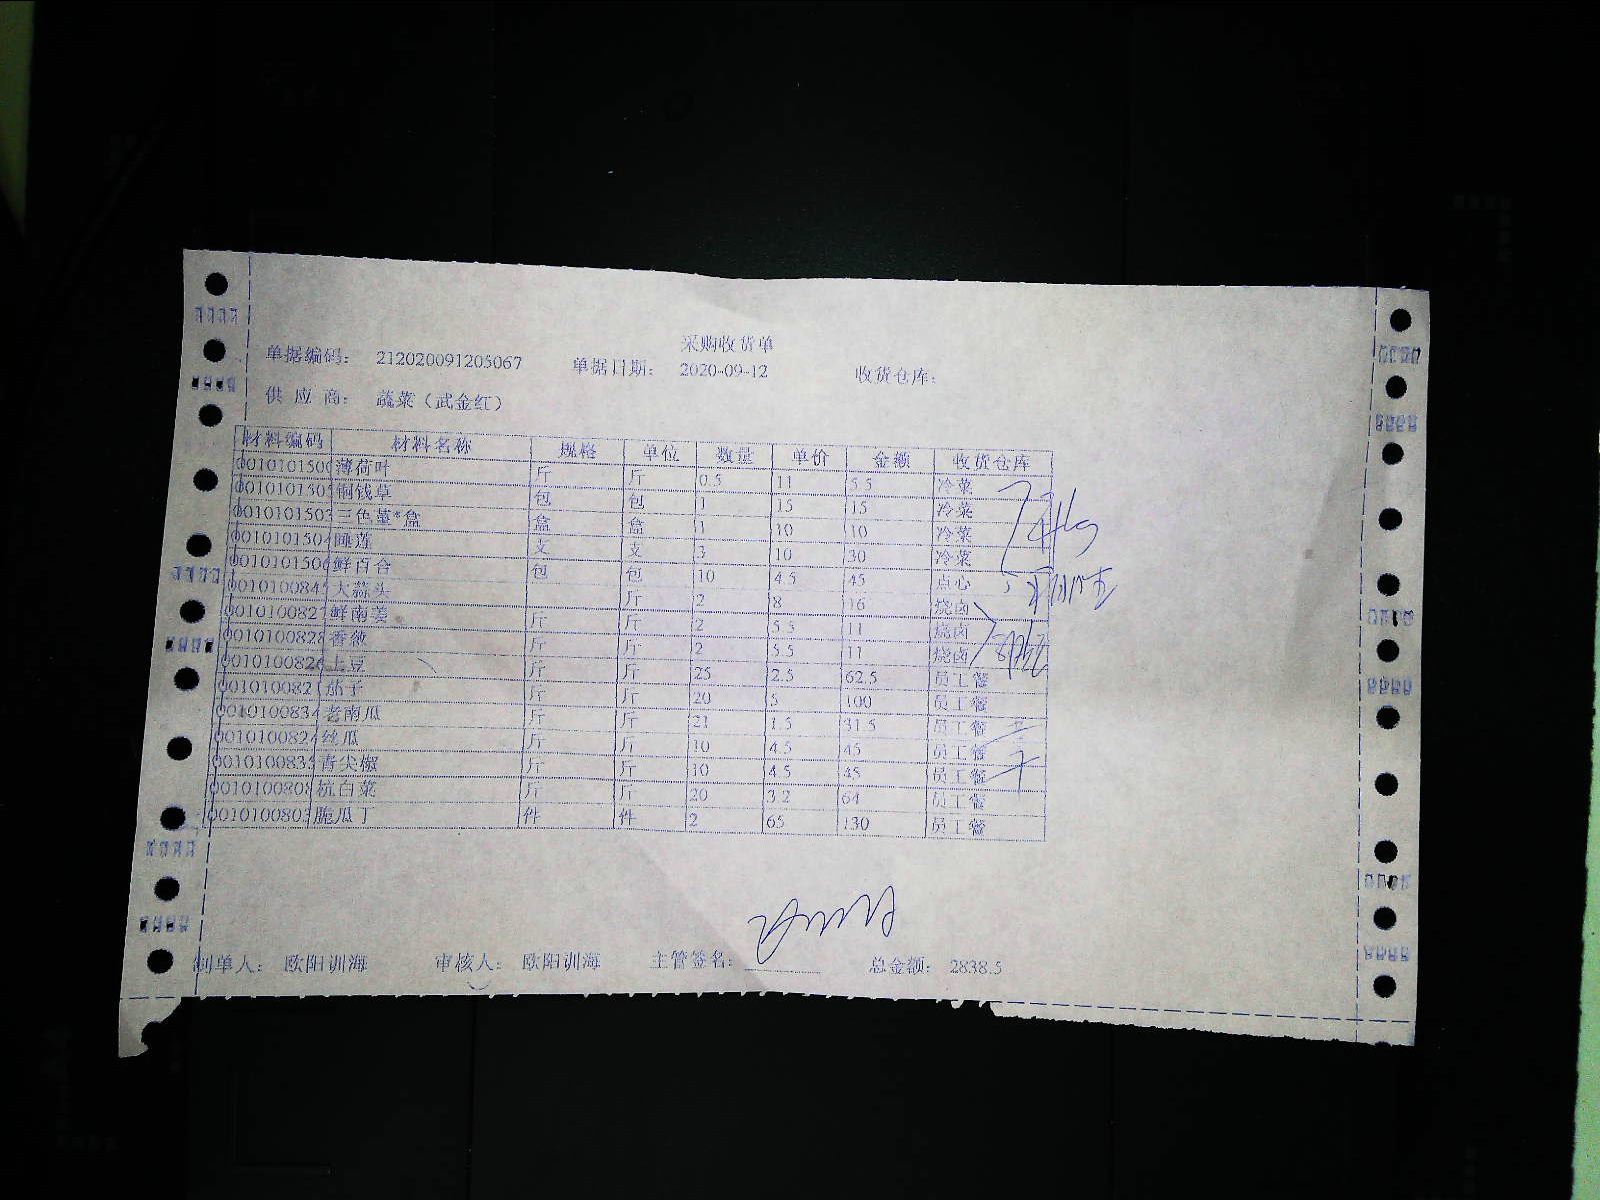 采购收货单
单据编码： 212020091205067 单据日期： 2020-09-12 收货仓库：
供 应 商： 蔬菜（武金红）
材料编码 材料名称 规格 单位 数量 单价 金额 收货仓库
0010101500 薄荷叶 斤 斤 0.5 11 5.5 冷菜
001010130 铜钱草 包 包 1 15 15 冷菜
0010101503 三色堇*盒 盒 盒 1 10 10 冷菜
001010150 睡莲 支 支 3 10 30 冷菜
001010150 鲜百合 包 包 10 4.5 45 点心
001010084 大蒜头 斤 2 8 16 烧卤
001010082 鲜南姜 斤 斤 2 5.5 11 烧卤
0010100828 香薇 斤 斤 2 5.5 11 烧卤
001010082 土豆 斤 斤 25 2.5 62.5 员工餐
001010082 茄子 斤 斤 20 5 100 员工餐
001010083 老南瓜 斤 斤 21 1.5 31.5 员工餐
001010082 丝瓜 斤 斤 10 4.5 45 员工餐
001010083 青尖椒 斤 斤 10 4.5 45 员工餐
001010080 杭白菜 斤 斤 20 3.2 64 员工餐
001010080 脆瓜丁 件 件 2 65 130 员工餐
制单人： 欧阳训海 审核人： 欧阳训海 主管签名： 总金额： 2838.5